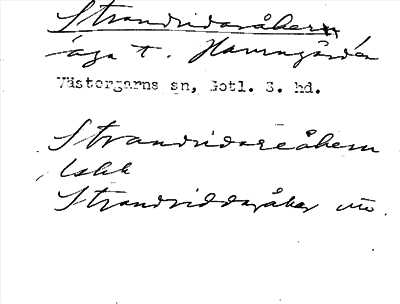 Strandridaråkern
äga t. Hamngården
Västergarns sn, Gotl. S. hd.
Strandridareåkern
Lskk
Strandriddaråker